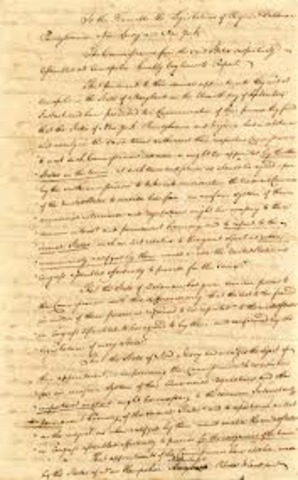 To the Honorable the Legislatures of Virginia, Delaware
Pennsylvania New Jersey and New York
The Commissioners from the said States respectively
assembled at Annapolis humbly beg leave to report
That pursuant to their several appointments they met at
Annapolis in the State of Maryland on the Eleventh day of September
Instant and having proceeded to a Communication of their powers they found
that the States of New York Pennsylvania and Virginia had in
to meet such Commissioners as might be appointed by the other
States in the Union at such time and place as should be agreed upon
by the said Commissioners to take into consideration the trade and Commerce
of the United States to consider how far an uniform system in their
commercial intercourse and regulations might be necessary to their
common interest and permanent harmony and to report to the
several States such an act relative to this great object as when
unanimously ratified by them would enable the United States in
Congress assembled effectually to provide for the same
That the State of Delaware had given similar powers to
their Commissioners with this difference only that the Act to be framed
in virtue of these powers is required to be reported to the United States
in Congress assembled to be agreed to by them and confirmed by the
Legislatures of every State
That the State of New Jersey had enlarged the object of
their appointment empowering their Commissioners to consider
how far an uniform system in their Commercial regulations and other
important matters might be necessary to the common Interest and
permanent harmony of the several States and to report such an Act
on the subject as when ratified by them would enable the United States
in Congress assembled effectually to provide for the exigencies of the Union
That appointments of
by the States of New Hampshire Rhode Island and